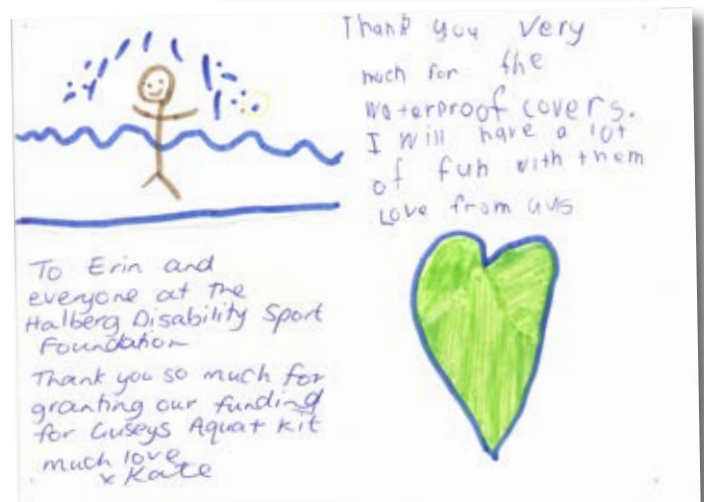 Thank you very
much for the
waterproof covers.
I will have a lot
of fun with them
Love from GUS
To Erin and
everyone at the
Halberg Disability Sport
Foundation
Thank you so much for
granting our funding
for Guseys Aquat kit
much love
x Kate